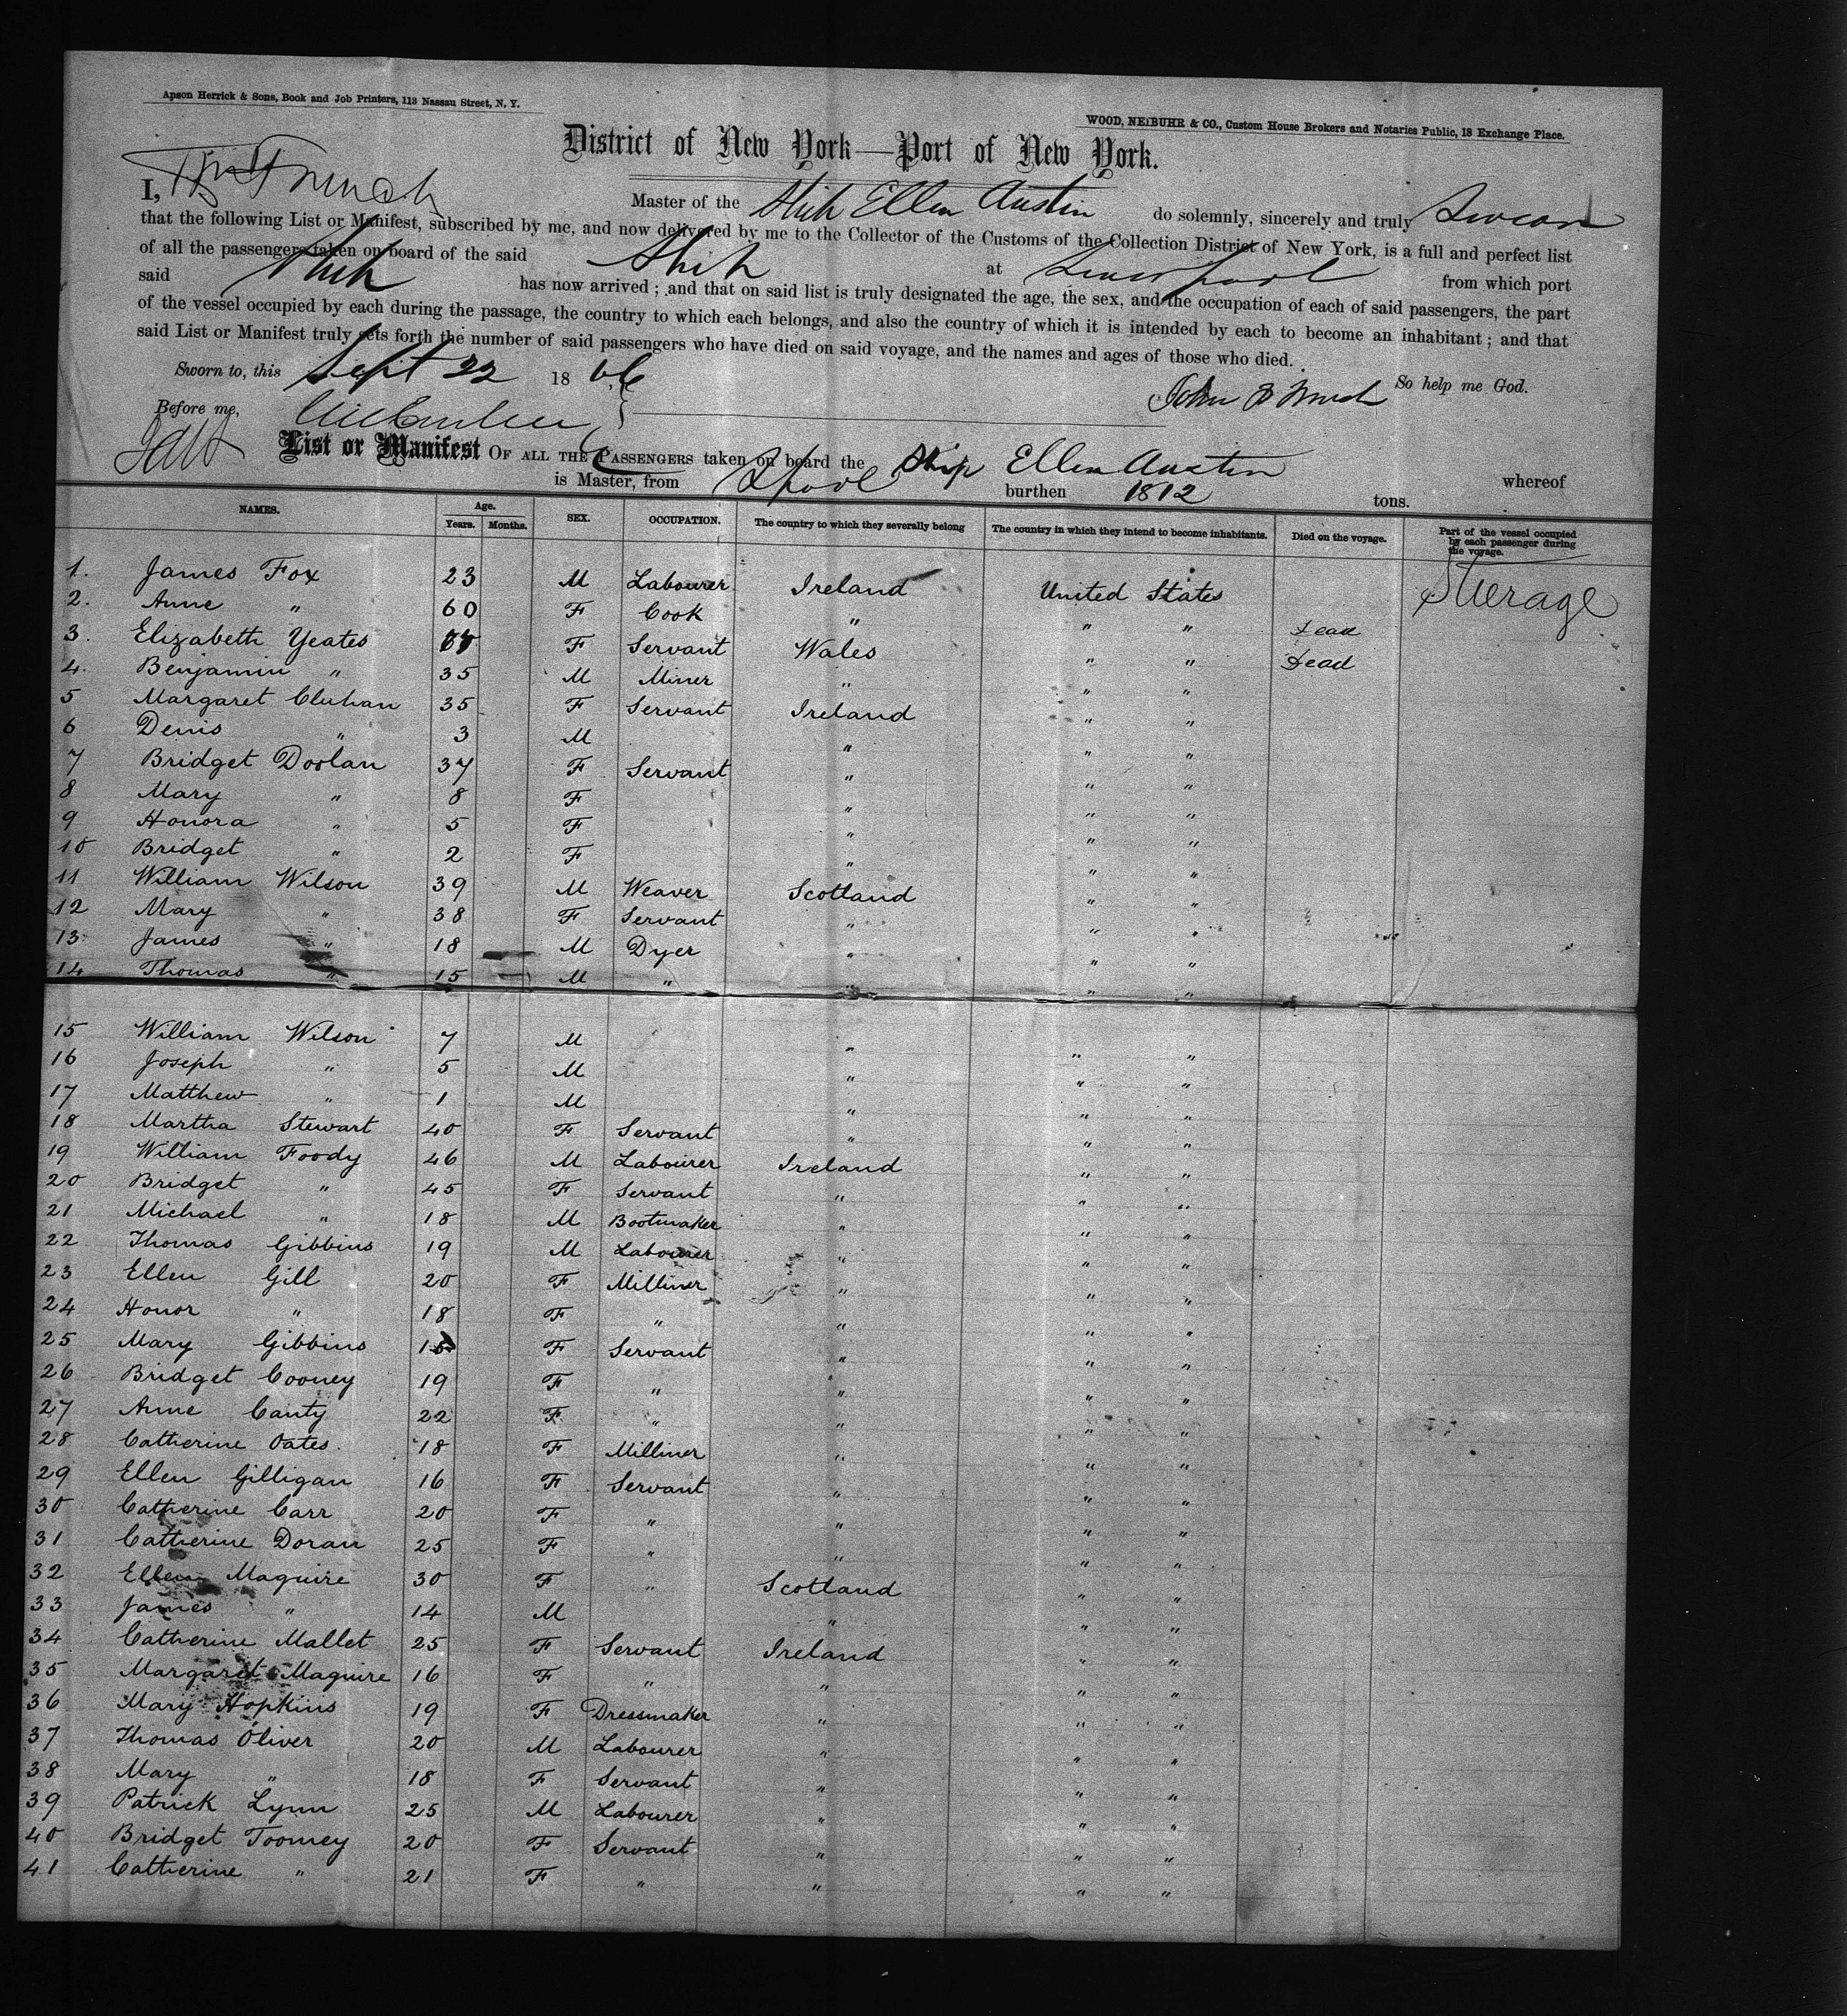 Apson Herrick & Sons, Book and Job Printers, 113 Nassau Street, N. Y.
WOOD, NEIBUHR & CO., Custom House Brokers and Notaries Public, 18 Exchange Place.
District of New York—Port of New York.
I, Master of the Ship Ellen Austin do solemnly, sincerely and truly Swear
that the following List or Manifest, subscribed by me, and now delivered by me to the Collector of the Customs of the Collection District of New York, is a full and perfect list
of all the passengers taken on board of the said Ship at Liverpool from which port
said Ship has now arrived; and that on said list is truly designated the age, the sex, and the occupation of each of said passengers, the part
of the vessel occupied by each during the passage, the country to which each belongs, and also the country of which it is intended by each to become an inhabitant; and that
said List or Manifest truly sets forth the number of said passengers who have died on said voyage, and the names and ages of those who died.
Sworn to, this Sept 22 1866 So help me God.
Before me, John
List or Manifest OF ALL THE PASSENGERS taken on board the Ship Ellen Austin whereof
is Master, from Lpool burthen 1812 tons.
NAMES. Age. Years. Months. SEX. OCCUPATION. The country to which they severally belong The country in which they intend to become inhabitants. Died on the voyage. Part of the vessel occupied by each passenger during the voyage.
1. James Fox 23 M Labourer Ireland United States Sterage
2. Anne " 60 F Cook " " " Dead
3. Elizabeth Yeates F Servant Wales " " Dead
4. Benjamin " 35 M Miner " " "
5 Margaret Cluhan 35 F Servant Ireland " "
6 Denis " 3 M " " "
7 Bridget Doolan 37 F Servant " " "
8 Mary " 8 F " " "
9 Honora " 5 F " " "
10 Bridget " 2 F " " "
11 William Wilson 39 M Weaver Scotland " "
12 Mary " 38 F Servant " " "
13 James " 18 M Dyer " " "
14 Thomas " 15 M " " " "
15 William Wilson 7 M " " "
16 Joseph " 5 M " " "
17 Matthew " 1 M " " "
18 Martha Stewart 40 F Servant " " "
19 William Foody 46 M Labourer Ireland " "
20 Bridget " 45 F Servant " " "
21 Michael " 18 M Bootmaker " " "
22 Thomas Gibbins 19 M Labourer " " "
23 Ellen Gill 20 F Milliner " " "
24 Honor " 18 F " " " "
25 Mary Gibbins F Servant " " "
26 Bridget Cooney 19 F " " " "
27 Anne Canty 22 F " " " "
28 Catherine Oates 18 F Milliner " " "
29 Ellen Gilligan 16 F Servant " " "
30 Catherine Carr 20 F " " " "
31 Catherine Doran 25 F " " " "
32 Ellen Maguire 30 F " Scotland " "
33 James " 14 M " " "
34 Catherine Mallet 25 F Servant Ireland " "
35 Margaret Maguire 16 F " " " "
36 Mary Hopkins 19 F Dressmaker " " "
37 Thomas Oliver 20 M Labourer " " "
38 Mary " 18 F Servant " " "
39 Patrick Lynn 25 M Labourer " " "
40 Bridget Toomey 20 F Servant " " "
41 Catherine " 21 F " " " "